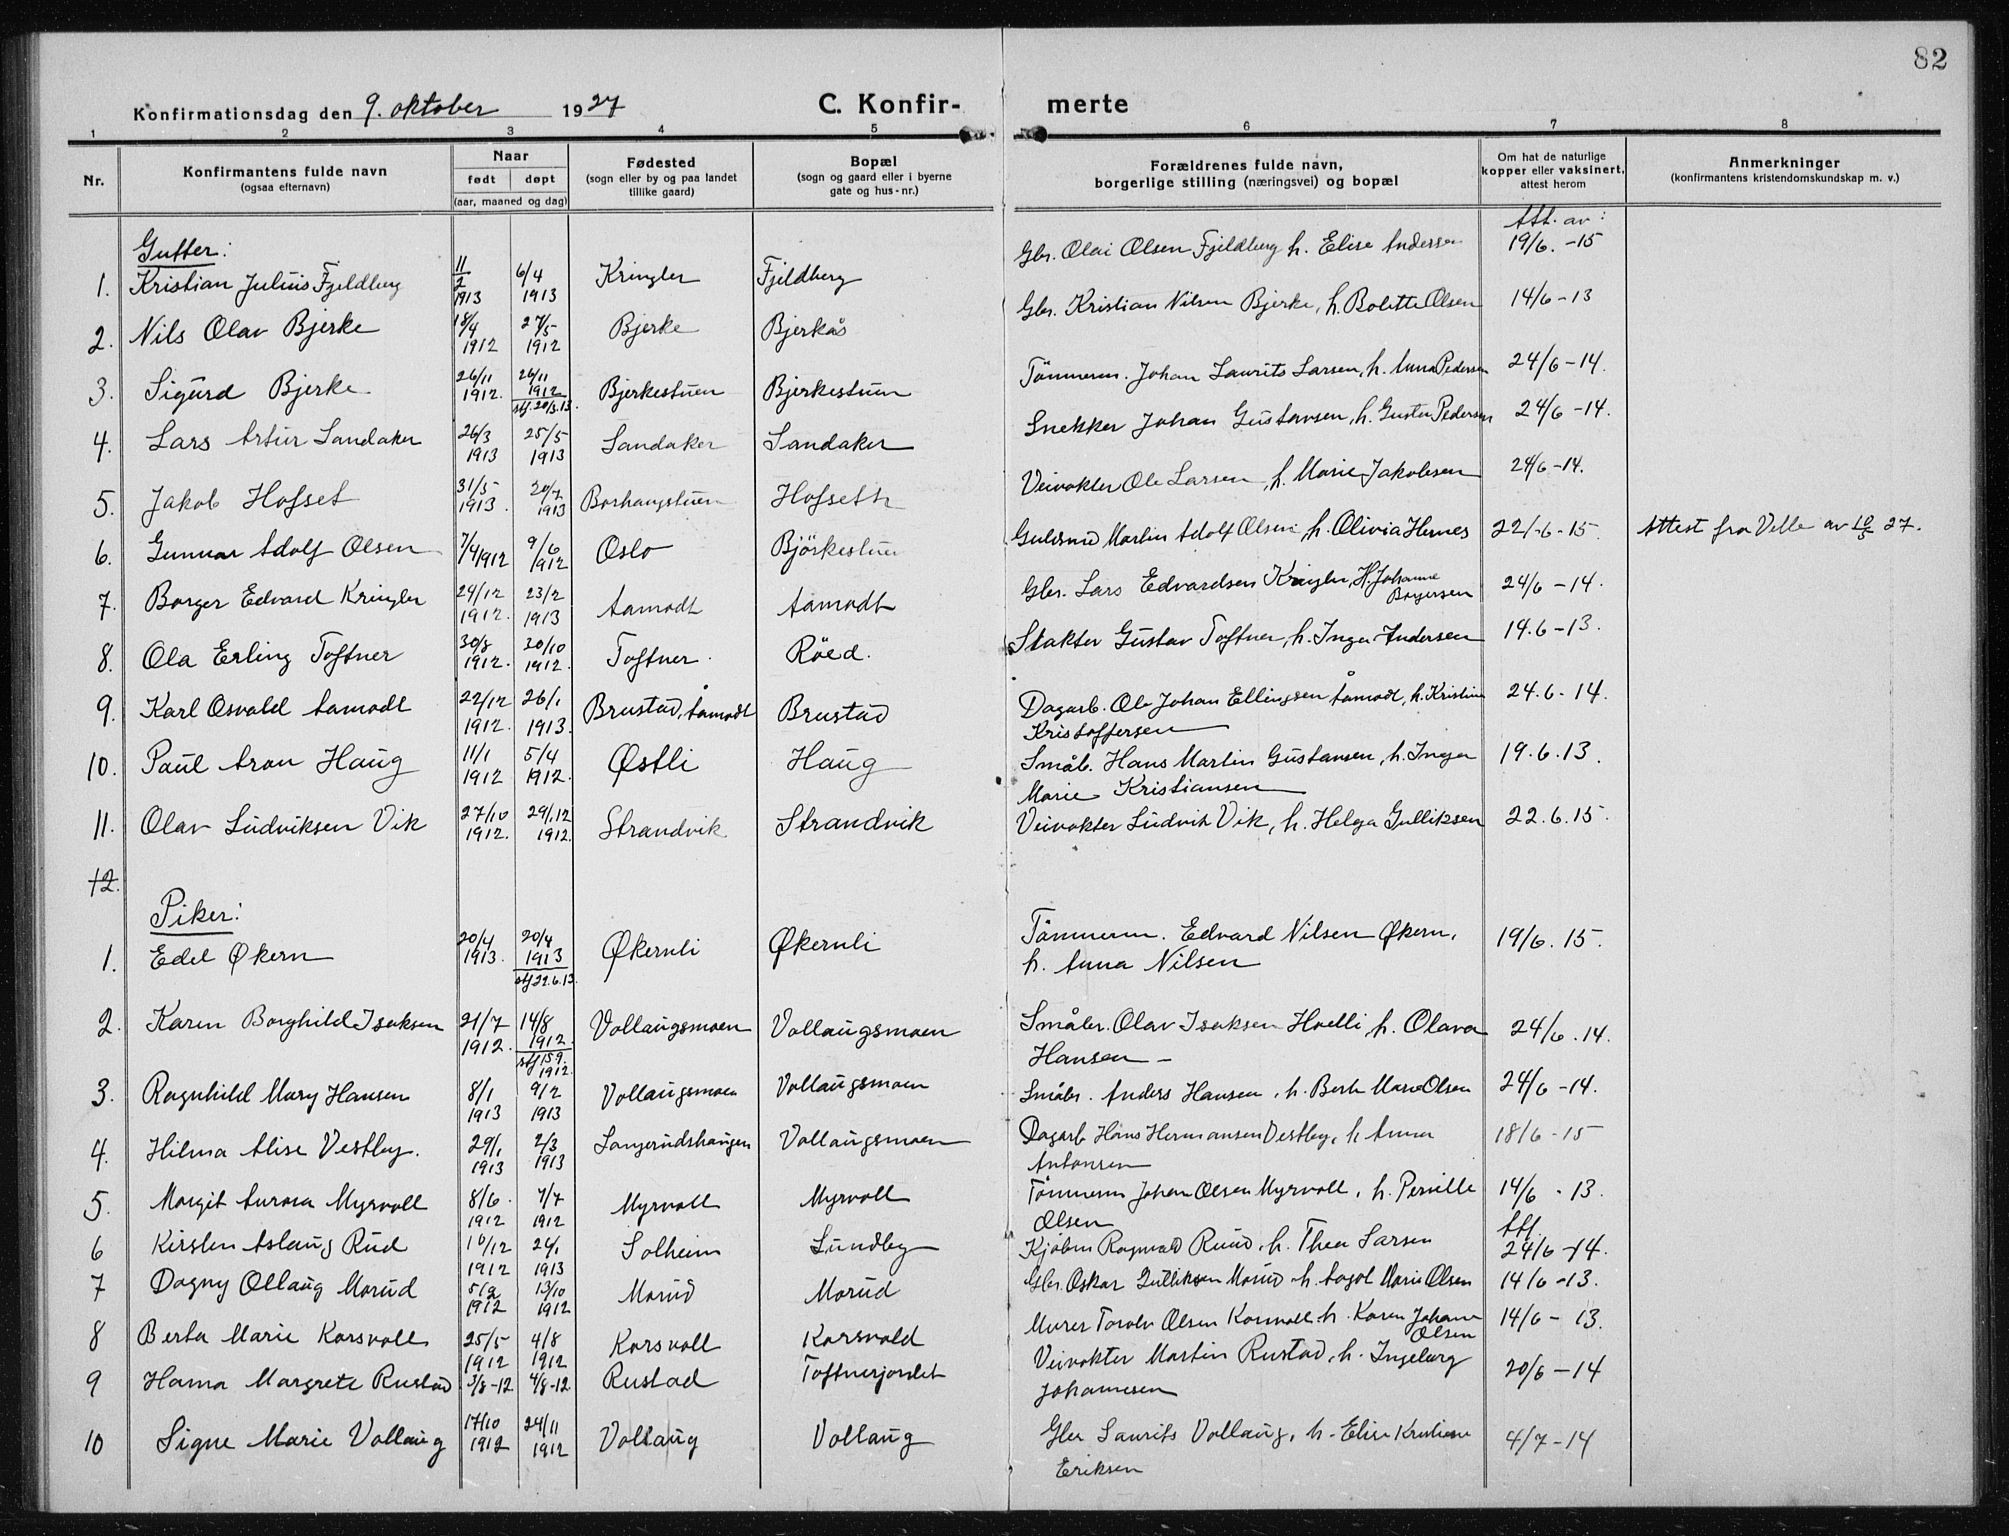 82
Konfirmationsdag den 9. oktober 1927 C. Konfir- merte
1 2 3 4 5 6 7 8
Nr. Konfirmantens fulde navn (ogsaa efternavn) Naar født døpt (aar, maaned og dag) Fødested (sogn eller by og paa landet tillike gaard) Bopæl (sogn og gaard eller i byerne gate og hus-nr.) Forældrenes fulde navn, borgerlige stilling (næringsvei) og bopæl Om hat de naturlige kopper eller vaksinert, attest herom Anmerkninger (konfirmantens kristendomskundskap m. v.)
Gutter:
1. Kristian Julius Fjeldberg 11/2 1913 6/4 1913 Kringler Fjeldberg Gbr. Olai Olsen Fjeldberg h. Elise Andersen Att. av: 19/6.-15
2. Nils Olav Bjerke 18/4 1912 27/5 1912 Bjerke Bjerkås Gbr. Kristian Nilsen Bjerke, h. Bolette Olsen 14/6-13
3. Sigurd Bjerke 26/11 1912. 26/11 1912 stf. 20/3.13. Bjerkestuen Bjerkestuen Tömmerm. Johan Laurits Larsen, h. Anna Pedersen 24/6-14.
4. Lars Artur Sandaker 26/3 1913 25/5 1913 Sandaker Sandaker Snekker Johan Gustavsen, h. Gusta Pedersen 24/6-14.
5. Jakob Hofset 31/5 1913. 20/7 1913 Borhaugstuen Hofseth Veivokter Ole Larsen, h. Marie Jakobsen 24/6-14.
6. Gunnar Adolf Olsen 7/4 1912 9/6 1912 Oslo Björkestuen Martin Adolf Olsen h. Olivia Hernes 22/-6-15. Attest fra av 10/5 27.
7. Borger Edvard Kringler 24/12 1912. 23/2 1913 Aamodt Aamodt Gbr. Lars Edvardsen Kringler, H. Johanne Borgersen 24/6-14.
8. Ola Erling Toftner 30/8 1912. 20/10 1912. Toftner. Röed. Stakter Gustav Toftner, h. Inga Andersen 14.6-13.
9. Karl Osvald Aamodt 22/12 1912. 26/1 1913. Brustad, Åamodt Brustad Dagarb. Ole Johan Ellingsen Åamodt, h. Kristine Kristoffersen 24.6-14.
10. Paul Aron Haug 11/1 1912 5/4 1912. Østli Haug Småb. Hans Martin Gustavsen, h. Inga Marie Kristiansen 19.6.13.
11. Olav Ludviksen Vik 27/10 1912. 29/.12 1912. Strandvik Strandvik Veivokter Ludvik Vik, h. Helga Gulliksen 22.6.15.
12.
Piker:
1. Edel Økern 20/4 1913. 20/4 1913 stf 22.6.13. Økernli Økernli Tömmerm. Edvard Nilsen Økern, h. Anna Nilsen 19/6.15.
2. Karen Borghild Isaksen 21/7 1912. 14/8 1912. stf 15.9. 1912. Vollaugsmoen Vollaugsmoen Småbr. Olav Isaksen Hoelli, h. Olava Hansen - 24/6.14.
3. Ragnhild Mary Hansen 8/1 1913 9/2 1913 Vollaugsmoen Vollaugsmoen Småbr. Anders Hansen, h. Berte Marie Olsen 24/6-14.
4. Hilma Alise Vestby. 29/1 1913 2/3 1913 Langerudshaugen Vollaugsmoen Dagarb Hans Hermansen Vestby, h. Anna Antonsen 18/6-15
5. Margit Aurora Myrvoll 8/6. 1912 7/7 1912 Myrvoll Myrvoll Tömmerm Johan Olsen Myrvoll, h. Pernille Olsen 14/6.13.
6 Kirsten Aslaug Rud 16/12 1912 26/1 1913 Solheim Lundby Kjöbm Ragnvald Ruud, h. Thea Larsen Att. 24/6-14.
7 Dagny Ollaug Morud 1912 13/10 1912 Morud Morud Gbr. Oskar Gulliksen Morud h. Aagot Marie Olsen 14/6-13.
8 Berta Marie Korsvoll 25/5 1912 4/8 1912 Korsvoll Korsvold Murer Torolv Olsen Korsvoll h. Karen Johanne Olsen 14/6-13.
9 Hanna Margrete Rustad 3/8-12 4/8-12 Rustad Toftnerjordet Veivokter Martin Rustad, h. Ingeborg Johannesen 20/6-14
10 Signe Marie Vollaug 17/10 1912 24/11 1912 Vollaug Vollaug Gbr Laurits Vollaug, h. Elise Kristiane Eriksen 4/7-14